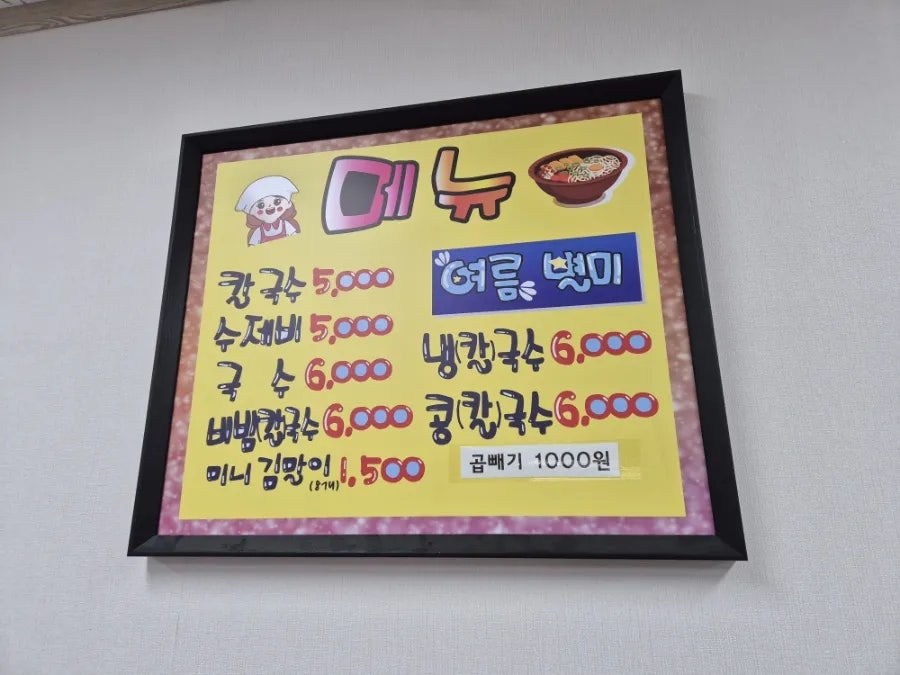 메뉴
칼국수 5,000
수제비 5,000
국 수 6,000
비빔(칼)국수 6,000
미니 김말이 (8개) 1,500
여름 별미
냉(칼)국수 6,000
콩(칼)국수 6,000
곱빼기 1000원